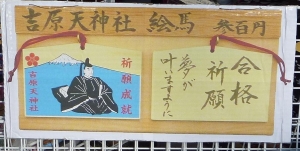 吉原天神社 絵馬 参百円
祈願成就
吉原天神社
合格
祈願
夢が
叶いますように